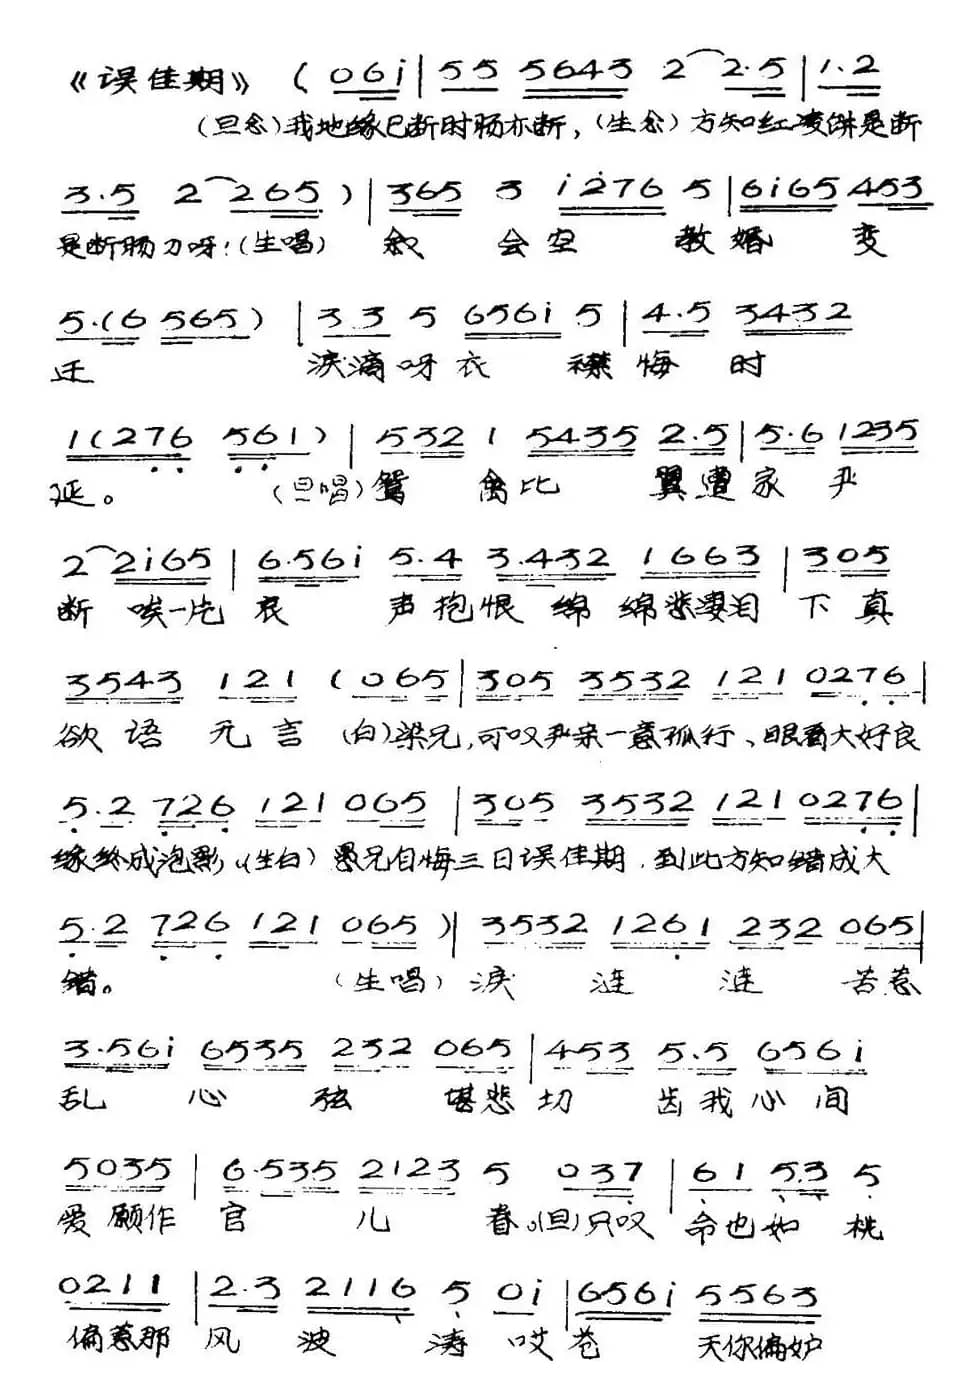 《误佳期》 (0 6 i | 5 5 5 6 4 3 2 2·5 | 1·2
(旦念)我地缘已断时肠亦断,(生念)方知红凌饼是断
3·5 2 2 6 5 ) | 3 6 5 3 i 2 7 6 5 | 6 i 6 5 4 5 3
是断肠刀呀!(生唱) 会空 教婚 变
5·(6 5 6 5) | 3 3 5 6 5 6 i 5 | 4·5 3 4 3 2
迁 泪滴呀衣 襟悔时
1(2 7 6 5 6 1) | 5 3 2 1 5 4 3 5 2·5 | 5·6 1 2 3 5
延。 (旦唱)鸳禽比 翼遭家 严
2 2 i 6 5 | 6·5 6 i 5·4 3·4 3 2 1 6 6 3 | 3 0 5
断 唉一片 哀 声抱恨 绵 绵悲凄泪 下真
3 5 4 3 1 2 1 (0 6 5 | 3 0 5 3 5 3 2 1 2 1 0 2 7 6 |
欲语无言 (白)梁兄,可叹严亲一意孤行、眼看大好良
5·2 7 2 6 1 2 1 0 6 5 | 3 0 5 3 5 3 2 1 2 1 0 2 7 6 |
缘终成泡影,(生白)愚兄自悔三日误佳期,到此方知错成大
5·2 7 2 6 1 2 1 0 6 5 ) | 3 5 3 2 1 2 6 1 2 3 2 0 6 5 |
错。 (生唱)泪 涟 涟 苦惹
3·5 6 i 6 5 3 5 2 3 2 0 6 5 | 4 5 3 5·5 6 5 6 i
乱 心 弦 堪悲切 齿我心间
5 0 3 5 | 6·5 3 5 2 1 2 3 5 0 3 7 | 6 1 5·3 5
爱愿作 官 儿 春。(旦)只叹 命也如桃
0 2 1 1 | 2·3 2 1 1 6 5 0 i | 6 5 6 i 5 5 6 3
偏惹那 风 波 涛 哎苍 天你偏妒